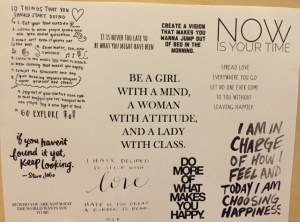 10 THINGS THAT YOU
SHOULD START DOING
GO EXPLORE
IT IS NEVER TOO LATE TO
BE WHAT YOU MIGHT HAVE BEEN
CREATE A VISION
THAT MAKES YOU
WANNA JUMP OUT
OF BED IN THE
MORNING.
NOW
IS YOUR TIME
SPREAD LOVE
EVERYWHERE YOU GO
LET NO ONE EVER COME
TO YOU WITHOUT
LEAVING HAPPIER
BE A GIRL
WITH A MIND,
A WOMAN
WITH ATTITUDE,
AND A LADY
WITH CLASS.
If you haven't
found it yet,
keep looking.
- Steve Jobs
I HAVE DECIDED
TO STICK WITH
love
HATE IS TOO GREAT
A BURDEN TO BEAR.
MLK
DO
MORE
OF WHAT
MAKES
YOU
HAPPY.
I AM IN
CHARGE
OF HOW I
FEEL AND
TODAY I AM
CHOOSING
HAPPINESS
BE WHO YOU ARE NOT WHAT
THE WORLD WANTS YOU
TO BE.